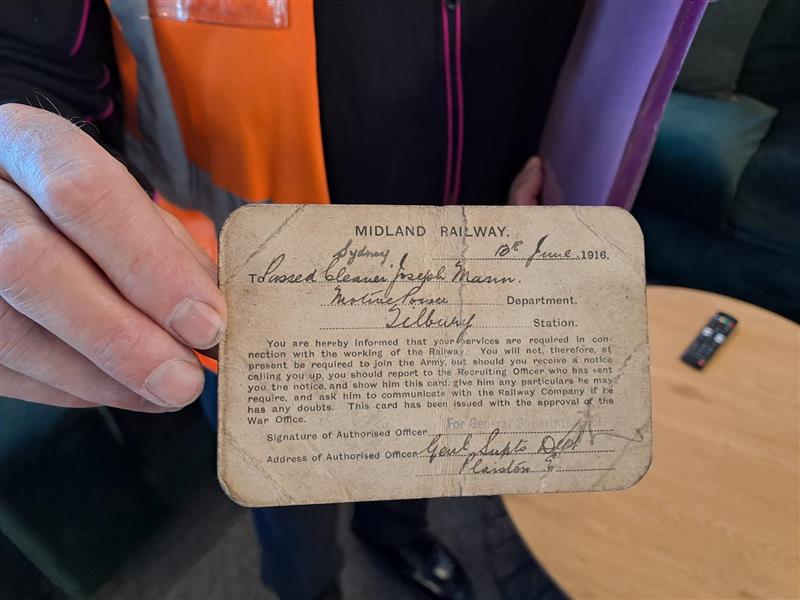 MIDLAND RAILWAY.
Sydney
13th June, 1916.
To Passed Cleaner Joseph Mann.
Motive Power Department.
Tilbury Station.
You are hereby informed that your services are required in con-
nection with the working of the Railway. You will not, therefore, at
present be required to join the Army, but should you receive a notice
calling you up, you should report to the Recruiting Officer who has sent
you the notice, and show him this card, give him any particulars he may
require, and ask him to communicate with the Railway Company if he
has any doubts. This card has been issued with the approval of the
War Office.
For General Superin
Signature of Authorised Officer
Address of Authorised Officer Genl Supts Dept
Plaistow E.